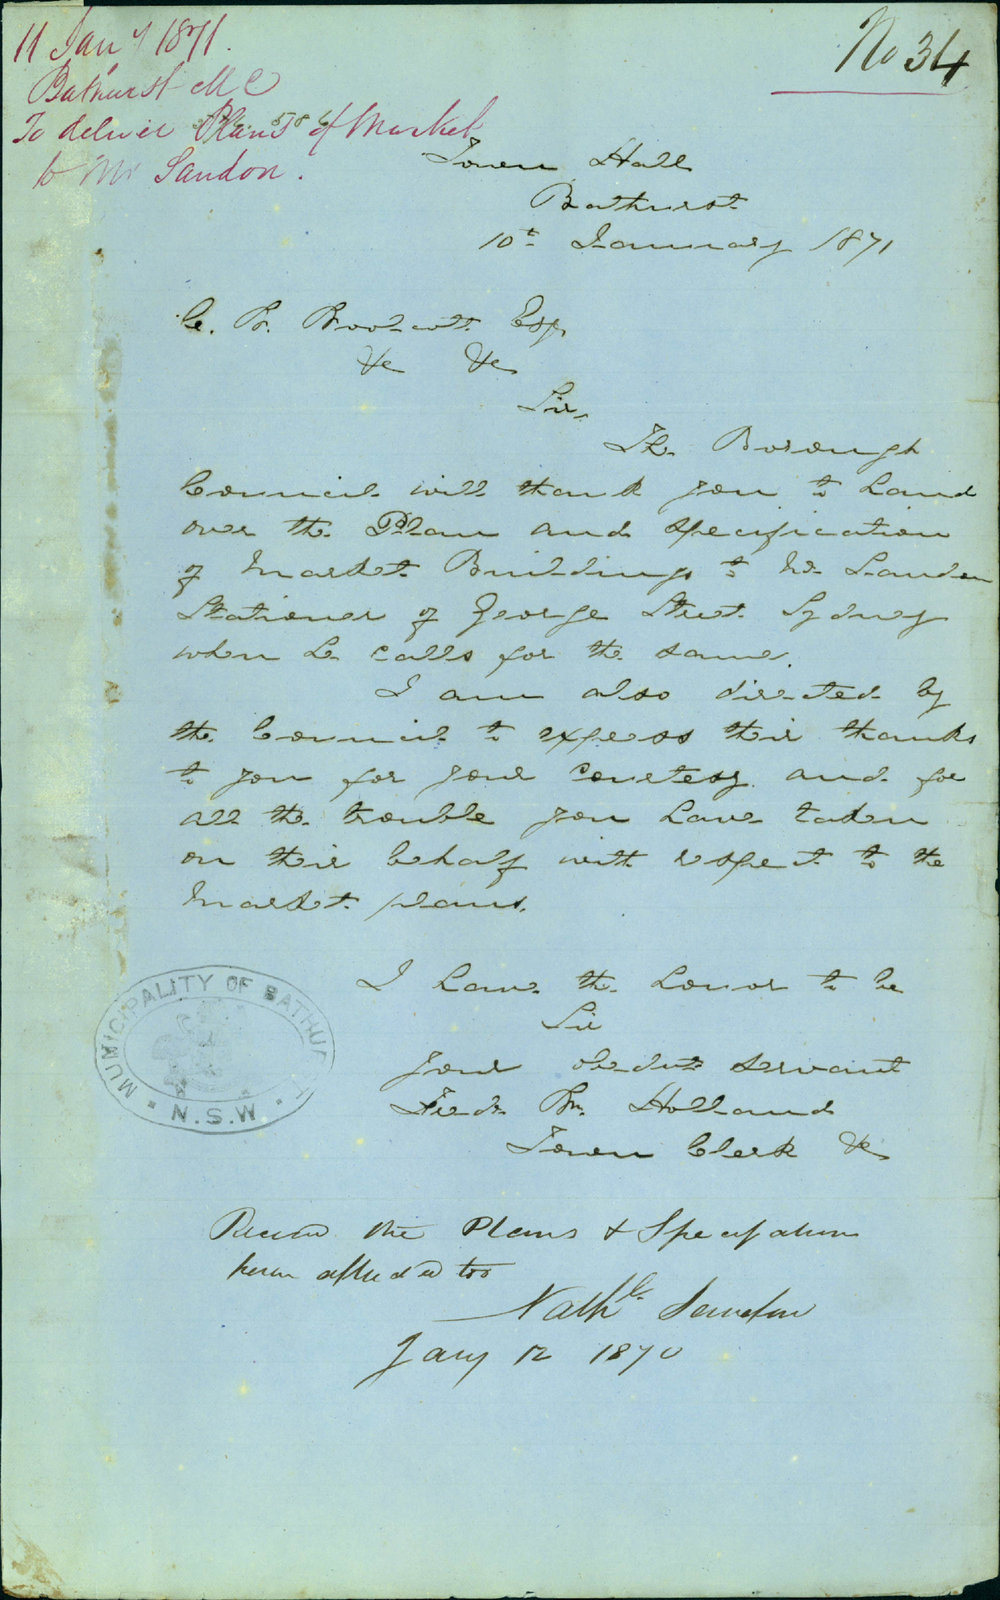 11 Jany 1871.
Bathurst M C
To deliver Plans of Market
to Mr Sandon.
No 34
Town Hall
Bathurst
10th January 1871
C. H. Woolcott Esq
&c &c
Sir,
The Borough
Council will thank you to hand
over the Plan and specification
of Market Buildings to Mr. Sandon
Stationer of George Street Sydney
when he calls for the same.
I am also directed by
the Council to express their thanks
to you for your Courtesy and for
all the trouble you have taken
on their behalf with respect to the
Market plans.
I have the honor to be
Sir
Your obedient servant
Fredk Wm. Holland
Town Clerk &c
MUNICIPALITY OF BATHURST
N.S.W.
Received the Plans & Specifications
herein alluded too
Nathl. Sandon
Jany 12 1870